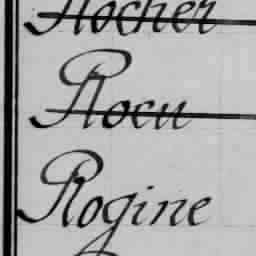 Rocher
Rocu
Rogine